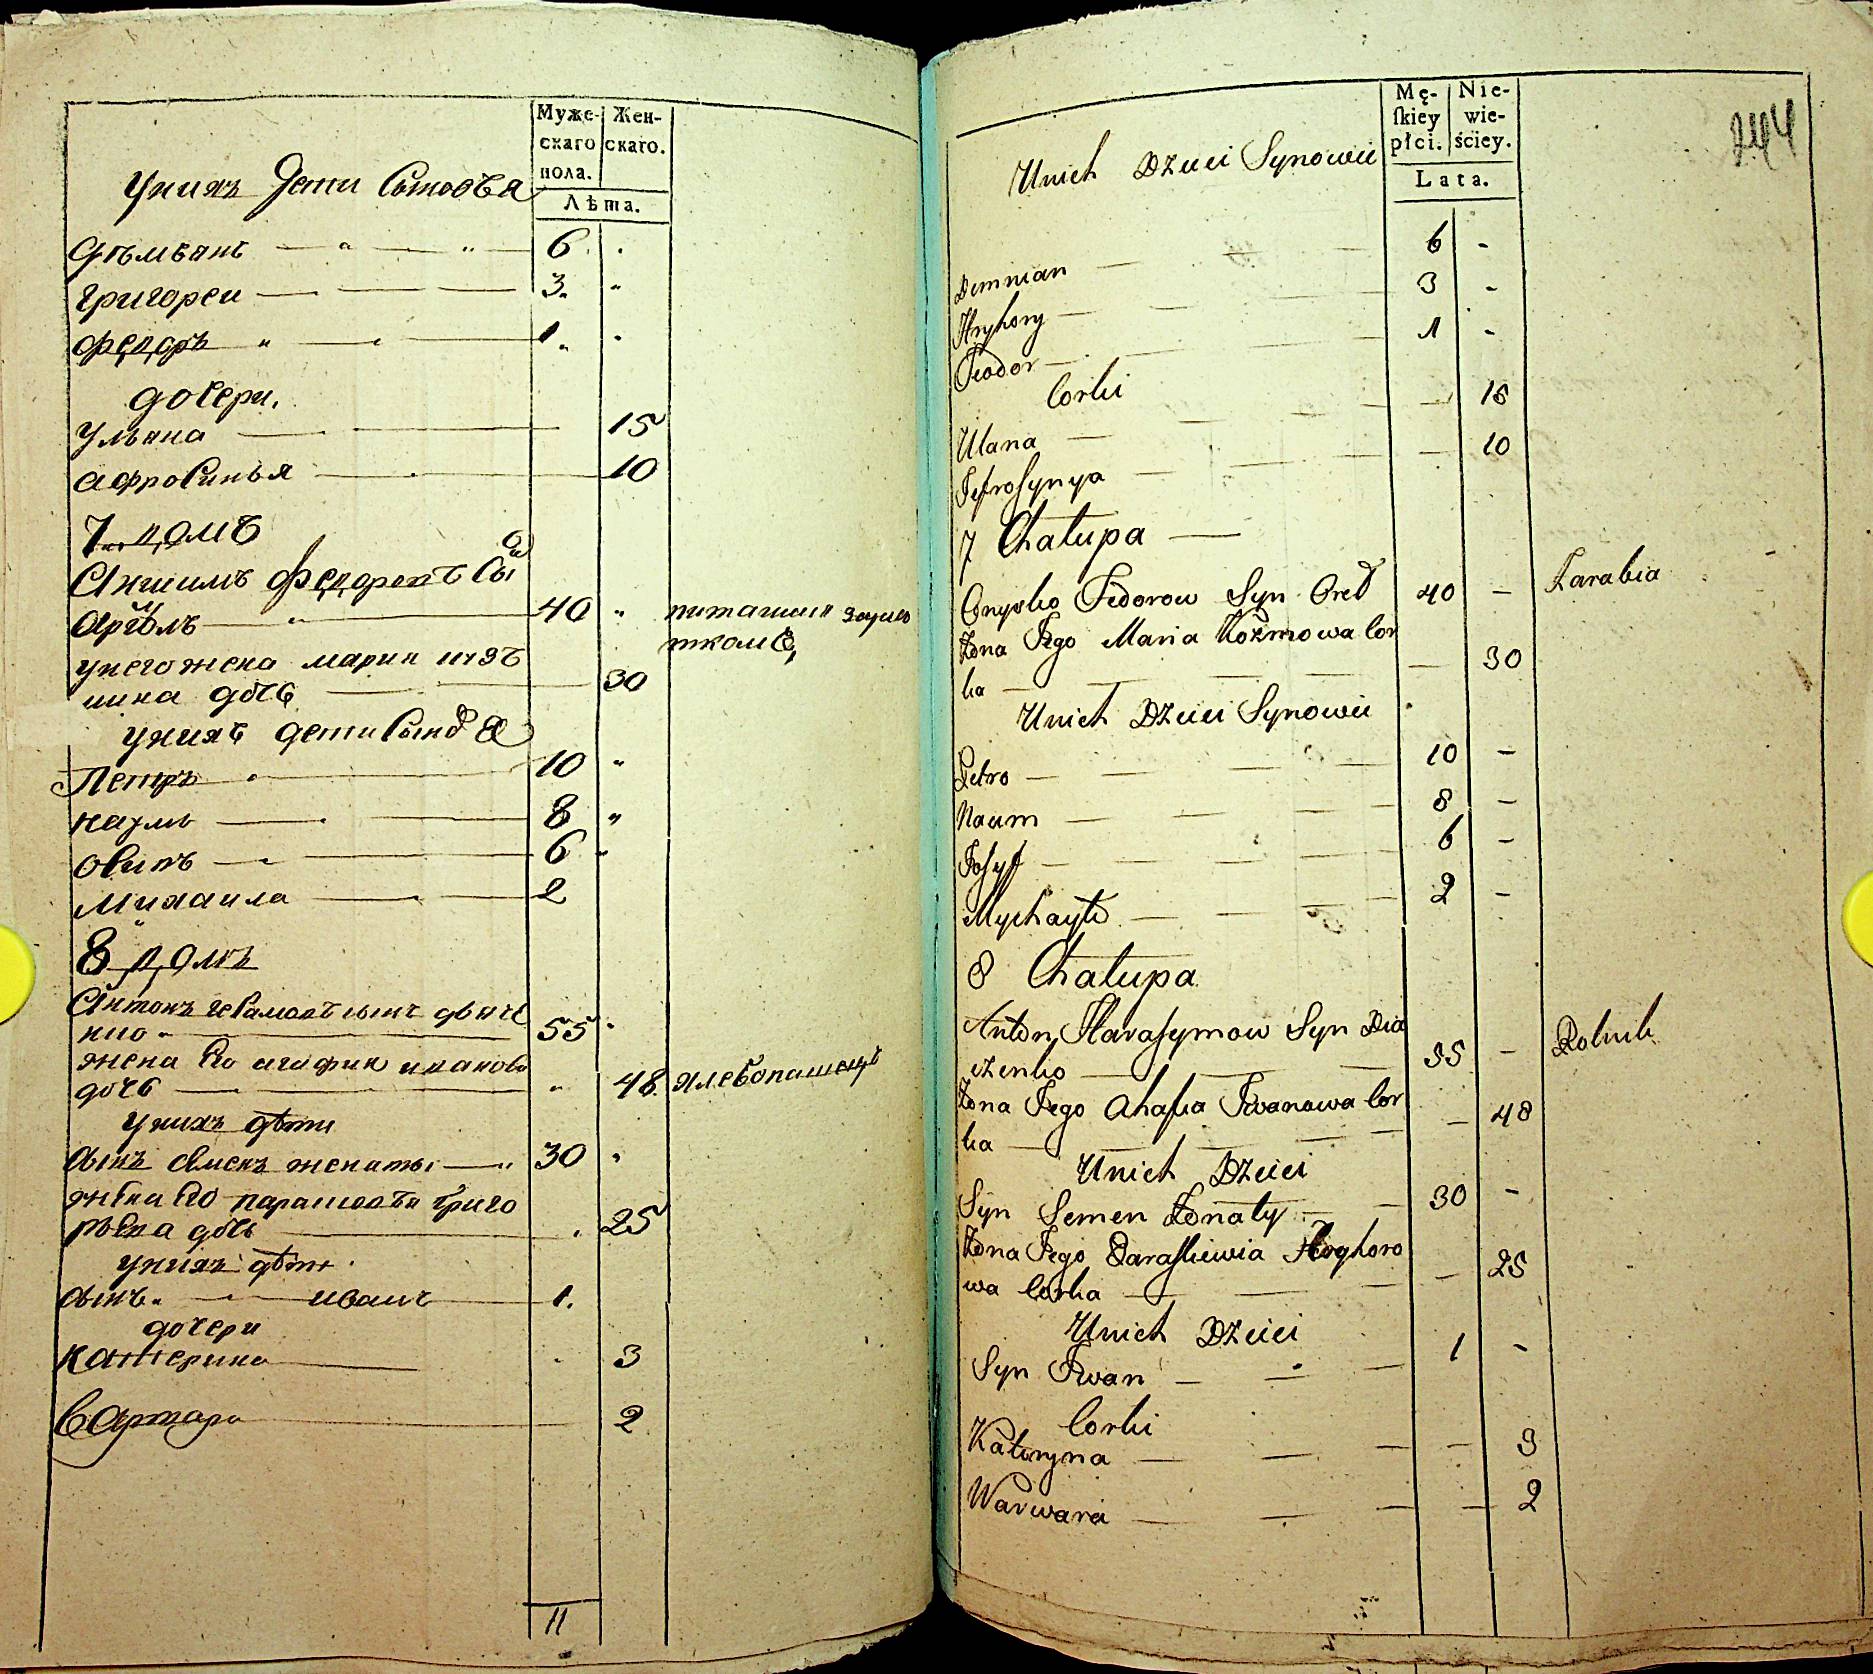 Муже-
скаго
пола.
Жен-
скаго.
Лѣта.
унихъ Дети Сыновья
Дѣмьянъ 6
григореи 3
федоръ 1
дочери.
ульяна 15
афросинья 10
7 домъ
федоровъ Сы
40
питается зарабо
ткомъ,
унего жена мария
дочь 30
унихъ дети Сыновья
Петръ 10
наумъ 8
осипъ 6
михаила 2
8 домъ
Антонъ сынъ дьяче
нко 55
жена Его агафия иванова
дочь 48 хлебопашецъ
унихъ дѣти
сынъ семенъ женаты 30
жена Его парасковья григо
рьева дочь 25
унихъ дѣти
сынъ иванъ 1.
дочери
катерина 3
варвара 2
11
Mę-
ſkiey
płci.
Nie-
wie-
ściey.
Lata.
244
Unich Dzieci Synowie
Demnian 6 -
Hryhory 3 -
Feodor 1 -
Corki
Ulana - 15
Jefrosynya - 10
7 Chałupa
Onysko Fedorow Syn Oreł 40 - Zarabia
Żona Jego Maria Kozmowa Cor
ka - 30
Unich Dzieci Synowie
Petro 10 -
Naum 8 -
Josyf 6 -
Mychayło 2 -
8 Chałupa
Anton Harasymow Syn Dia
czenko 55 - Rolnik
Żona Jego Ahafia Iwanowa Cor
ka - 48
Unich Dzieci
Syn Semen Żonaty 30 -
Żona Jego Paraskiewia Hryhoro
wa Corka - 25
Unich Dzieci
Syn Iwan 1 -
Corki
Kateryna - 3
Warwara - 2